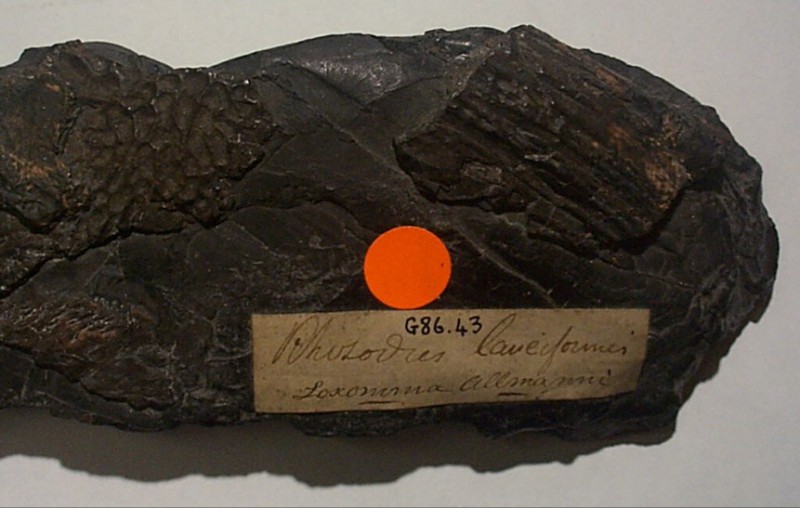 G86.43
Rhizodus lanciformis
Loxomma Allmanni